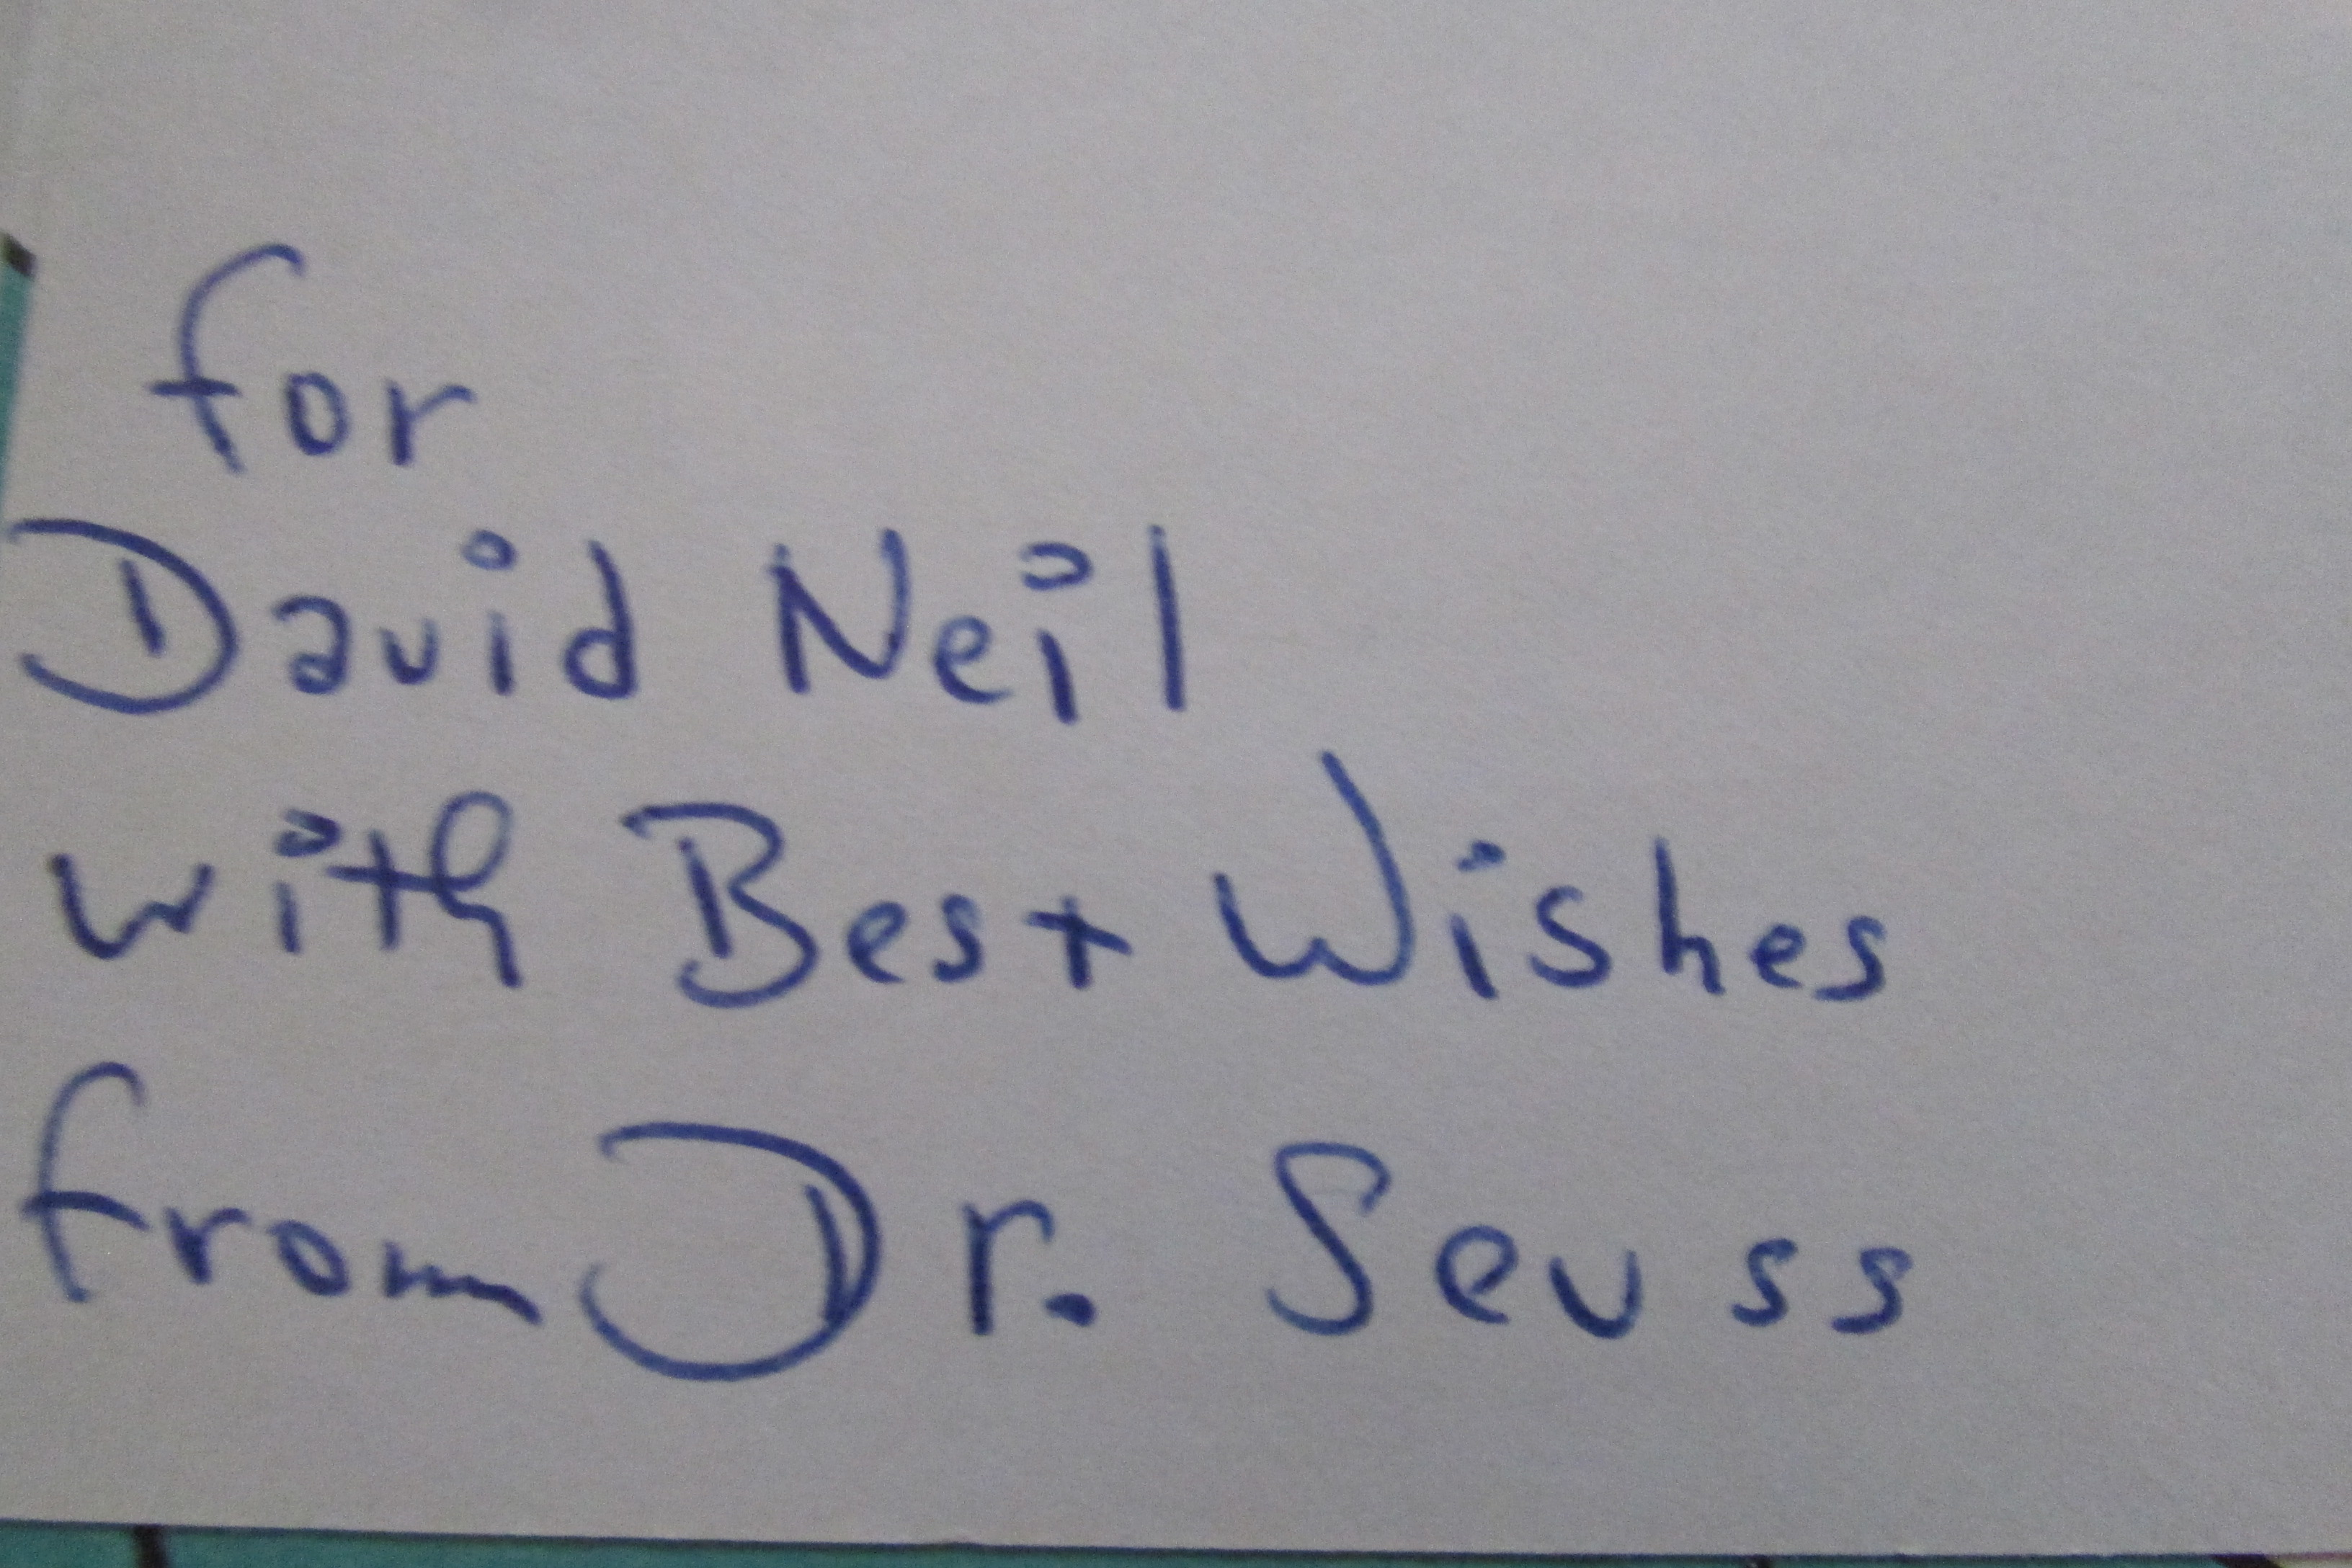 for
David Neil
with Best Wishes
from Dr. Seuss